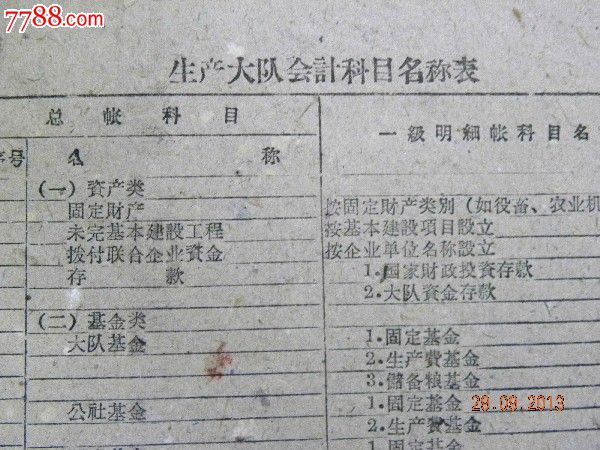 7788.com
生产大队会計科目名称表
总帐科目
一級明細帐科目名
序号 名 称
(一) 資产类
固定財产 按固定財产类别 (如役畜、农业机
未完基本建設工程 按基本建設項目設立
拨付联合企业資金 按企业单位名称設立
存 款 1.国家財政投資存款
2.大队資金存款
(二) 基金类
大队基金 1.固定基金
2.生产費基金
3.儲备粮基金
公社基金 1.固定基金
29.09.2013
2.生产費基金
1.固定基金